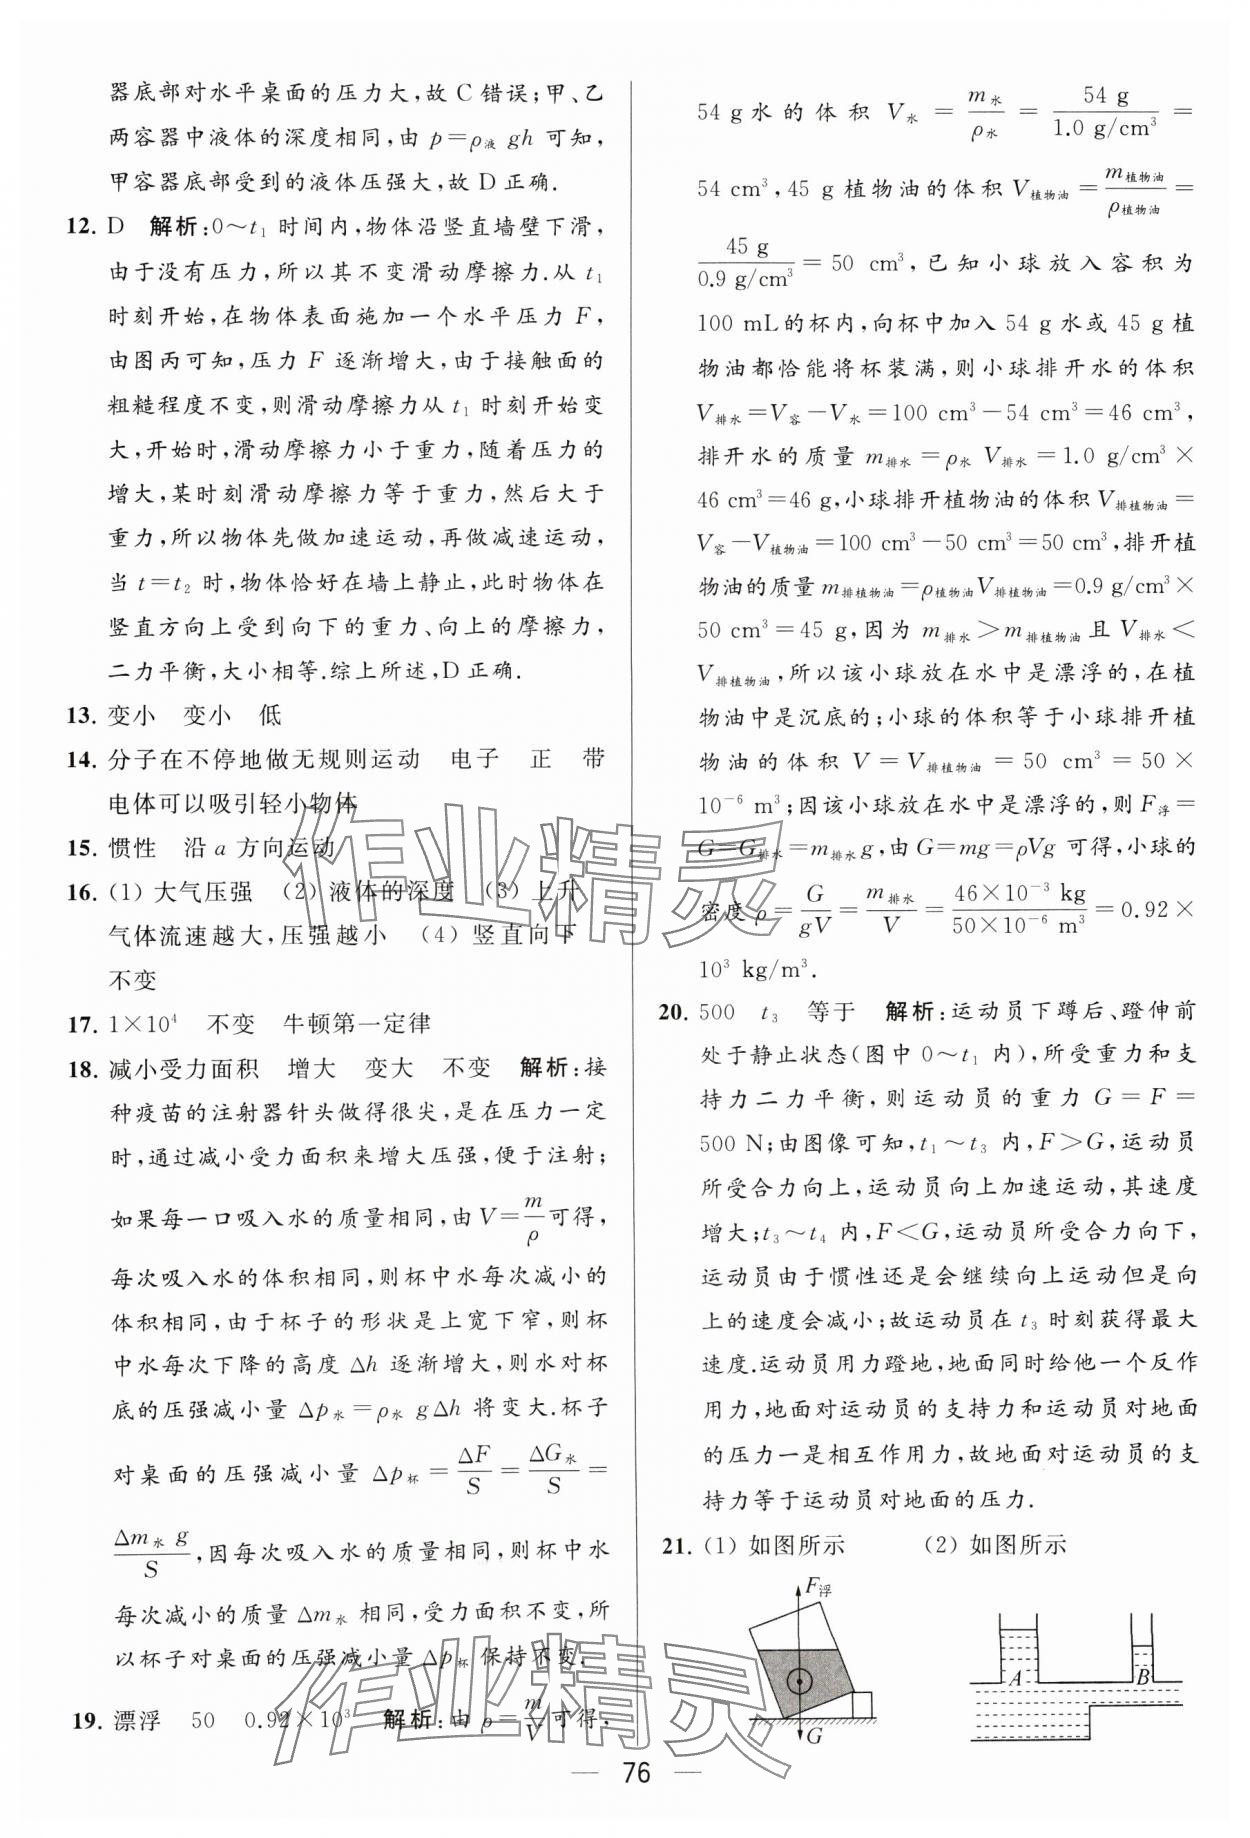 器底部对水平桌面的压力大,故 C 错误;甲、乙
两容器中液体的深度相同,由 p=ρ液 gh 可知,
甲容器底部受到的液体压强大,故 D 正确.
12. D 解析:0～t1 时间内,物体沿竖直墙壁下滑,
由于没有压力,所以其不变滑动摩擦力.从 t1
时刻开始,在物体表面施加一个水平压力 F,
由图丙可知,压力 F 逐渐增大,由于接触面的
粗糙程度不变,则滑动摩擦力从 t1 时刻开始变
大,开始时,滑动摩擦力小于重力,随着压力的
增大,某时刻滑动摩擦力等于重力,然后大于
重力,所以物体先做加速运动,再做减速运动,
当 t=t2 时,物体恰好在墙上静止,此时物体在
竖直方向上受到向下的重力、向上的摩擦力,
二力平衡,大小相等.综上所述,D 正确.
13. 变小 变小 低
14. 分子在不停地做无规则运动 电子 正 带
电体可以吸引轻小物体
15. 惯性 沿 a 方向运动
16. (1) 大气压强 (2) 液体的深度 (3) 上升
气体流速越大,压强越小 (4) 竖直向下
不变
17. 1×10⁴ 不变 牛顿第一定律
18. 减小受力面积 增大 变大 不变 解析:接
种疫苗的注射器针头做得很尖,是在压力一定
时,通过减小受力面积来增大压强,便于注射;
如果每一口吸入水的质量相同,由 V=m/ρ可得,
每次吸入水的体积相同,则杯中水每次减小的
体积相同,由于杯子的形状是上宽下窄,则杯
中水每次下降的高度 Δh 逐渐增大,则水对杯
底的压强减小量 Δp水=ρ水 gΔh 将变大.杯子
对桌面的压强减小量 Δp杯=ΔF/S=ΔG水/S=
Δm水 g/S,因每次吸入水的质量相同,则杯中水
每次减小的质量 Δm水 相同,受力面积不变,所
以杯子对桌面的压强减小量 Δp杯 保持不变.
19. 漂浮 50 0.92×10³ 解析:由 ρ=m/V可得,
54 g水的体积 V水=m水/ρ水=54 g/1.0 g/cm³=
54 cm³,45 g植物油的体积 V植物油=m植物油/ρ植物油=
45 g/0.9 g/cm³=50 cm³,已知小球放入容积为
100 mL的杯内,向杯中加入 54 g水或 45 g植
物油都恰能将杯装满,则小球排开水的体积
V排水=V容-V水=100 cm³-54 cm³=46 cm³,
排开水的质量 m排水=ρ水 V排水=1.0 g/cm³×
46 cm³=46 g,小球排开植物油的体积 V排植物油=
V容-V植物油=100 cm³-50 cm³=50 cm³,排开植
物油的质量 m排植物油=ρ植物油V排植物油=0.9 g/cm³×
50 cm³=45 g,因为 m排水>m排植物油且 V排水<
V排植物油,所以该小球放在水中是漂浮的,在植
物油中是沉底的;小球的体积等于小球排开植
物油的体积 V=V排植物油=50 cm³=50×
10⁻⁶ m³;因该小球放在水中是漂浮的,则 F浮=
G=G排水=m排水g,由 G=mg=ρVg 可得,小球的
密度 ρ=G/gV=m排水/V=46×10⁻³ kg/50×10⁻⁶ m³=0.92×
10³ kg/m³.
20. 500 t3 等于 解析:运动员下蹲后、蹬伸前
处于静止状态(图中 0～t1 内),所受重力和支
持力二力平衡,则运动员的重力 G=F=
500 N;由图像可知,t1～t3 内,F>G,运动员
所受合力向上,运动员向上加速运动,其速度
增大;t3～t4 内,F<G,运动员所受合力向下,
运动员由于惯性还是会继续向上运动但是向
上的速度会减小;故运动员在 t3 时刻获得最大
速度.运动员用力蹬地,地面同时给他一个反作
用力,地面对运动员的支持力和运动员对地面
的压力一是相互作用力,故地面对运动员的支
持力等于运动员对地面的压力.
21. (1) 如图所示 (2) 如图所示
F浮
G
A
B
76
作业精灵
作业精灵